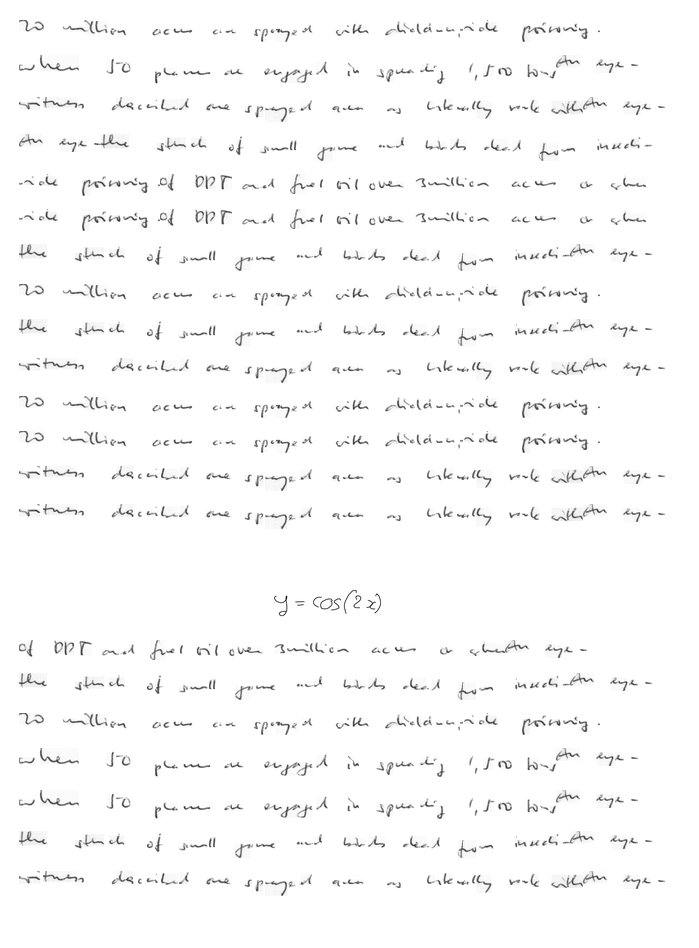 20 million acres are sprayed with dieldrin, side poisoning.
when 50 planes are engaged in spreading 1,500 tons An eye-
witness described one sprayed area as literally reek with An eye-
An eye the stench of small game and birds dead from insecti-
-cide poisoning of DDT and fuel oil over 3 million acres a when
-cide poisoning of DDT and fuel oil over 3 million acres a when
the stench of small game and birds dead from insecti- An eye-
20 million acres are sprayed with poisoning.
the stench of small game and birds dead from insecti- An eye-
witness described one sprayed area as literally reek with An eye-
20 million acres are sprayed with poisoning.
20 million acres are sprayed with poisoning.
witness described one sprayed area as literally reek with An eye-
witness described one sprayed area as literally reek with An eye-
y = cos(2x)
of DDT and fuel oil over 3 million acres a when An eye-
the stench of small game and birds dead from insecti- An eye-
20 million acres are sprayed with poisoning.
when 50 planes are engaged in spreading 1,500 tons An eye-
when 50 planes are engaged in spreading 1,500 tons An eye-
the stench of small game and birds dead from insecti- An eye-
witness described one sprayed area as literally reek with An eye-